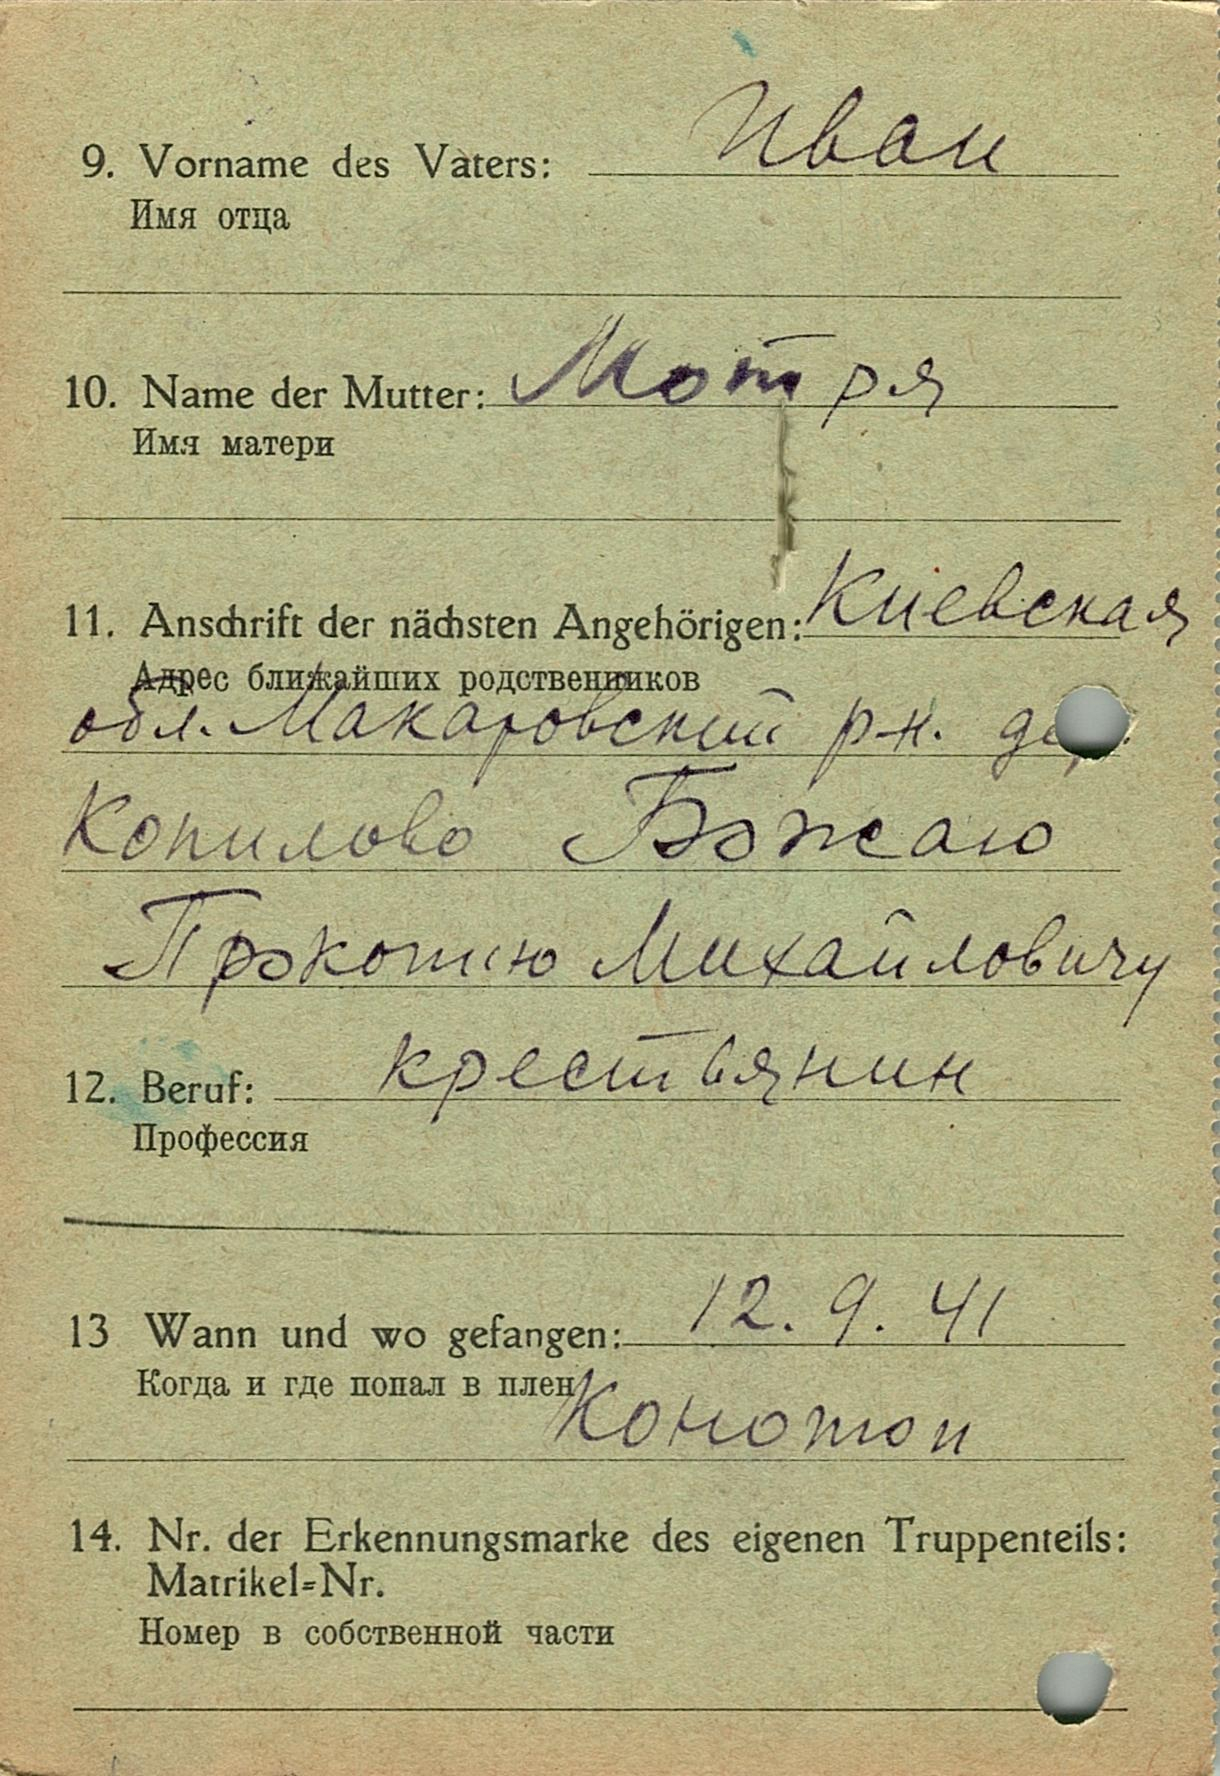 9. Vorname des Vaters: Иван
Имя отца
10. Name der Mutter: Мотря
Имя матери
11. Anschrift der nächsten Angehörigen: Киевская
Адрес ближайших родственников
обл. Макаровский р-н. дер.
Копилово Божаю
Прокопию Михайловичу
12. Beruf: крестьянин
Профессия
13 Wann und wo gefangen: 12. 9. 41
Когда и где попал в плен
Конотоп
14. Nr. der Erkennungsmarke des eigenen Truppenteils:
Matrikel=Nr.
Номер в собственной части